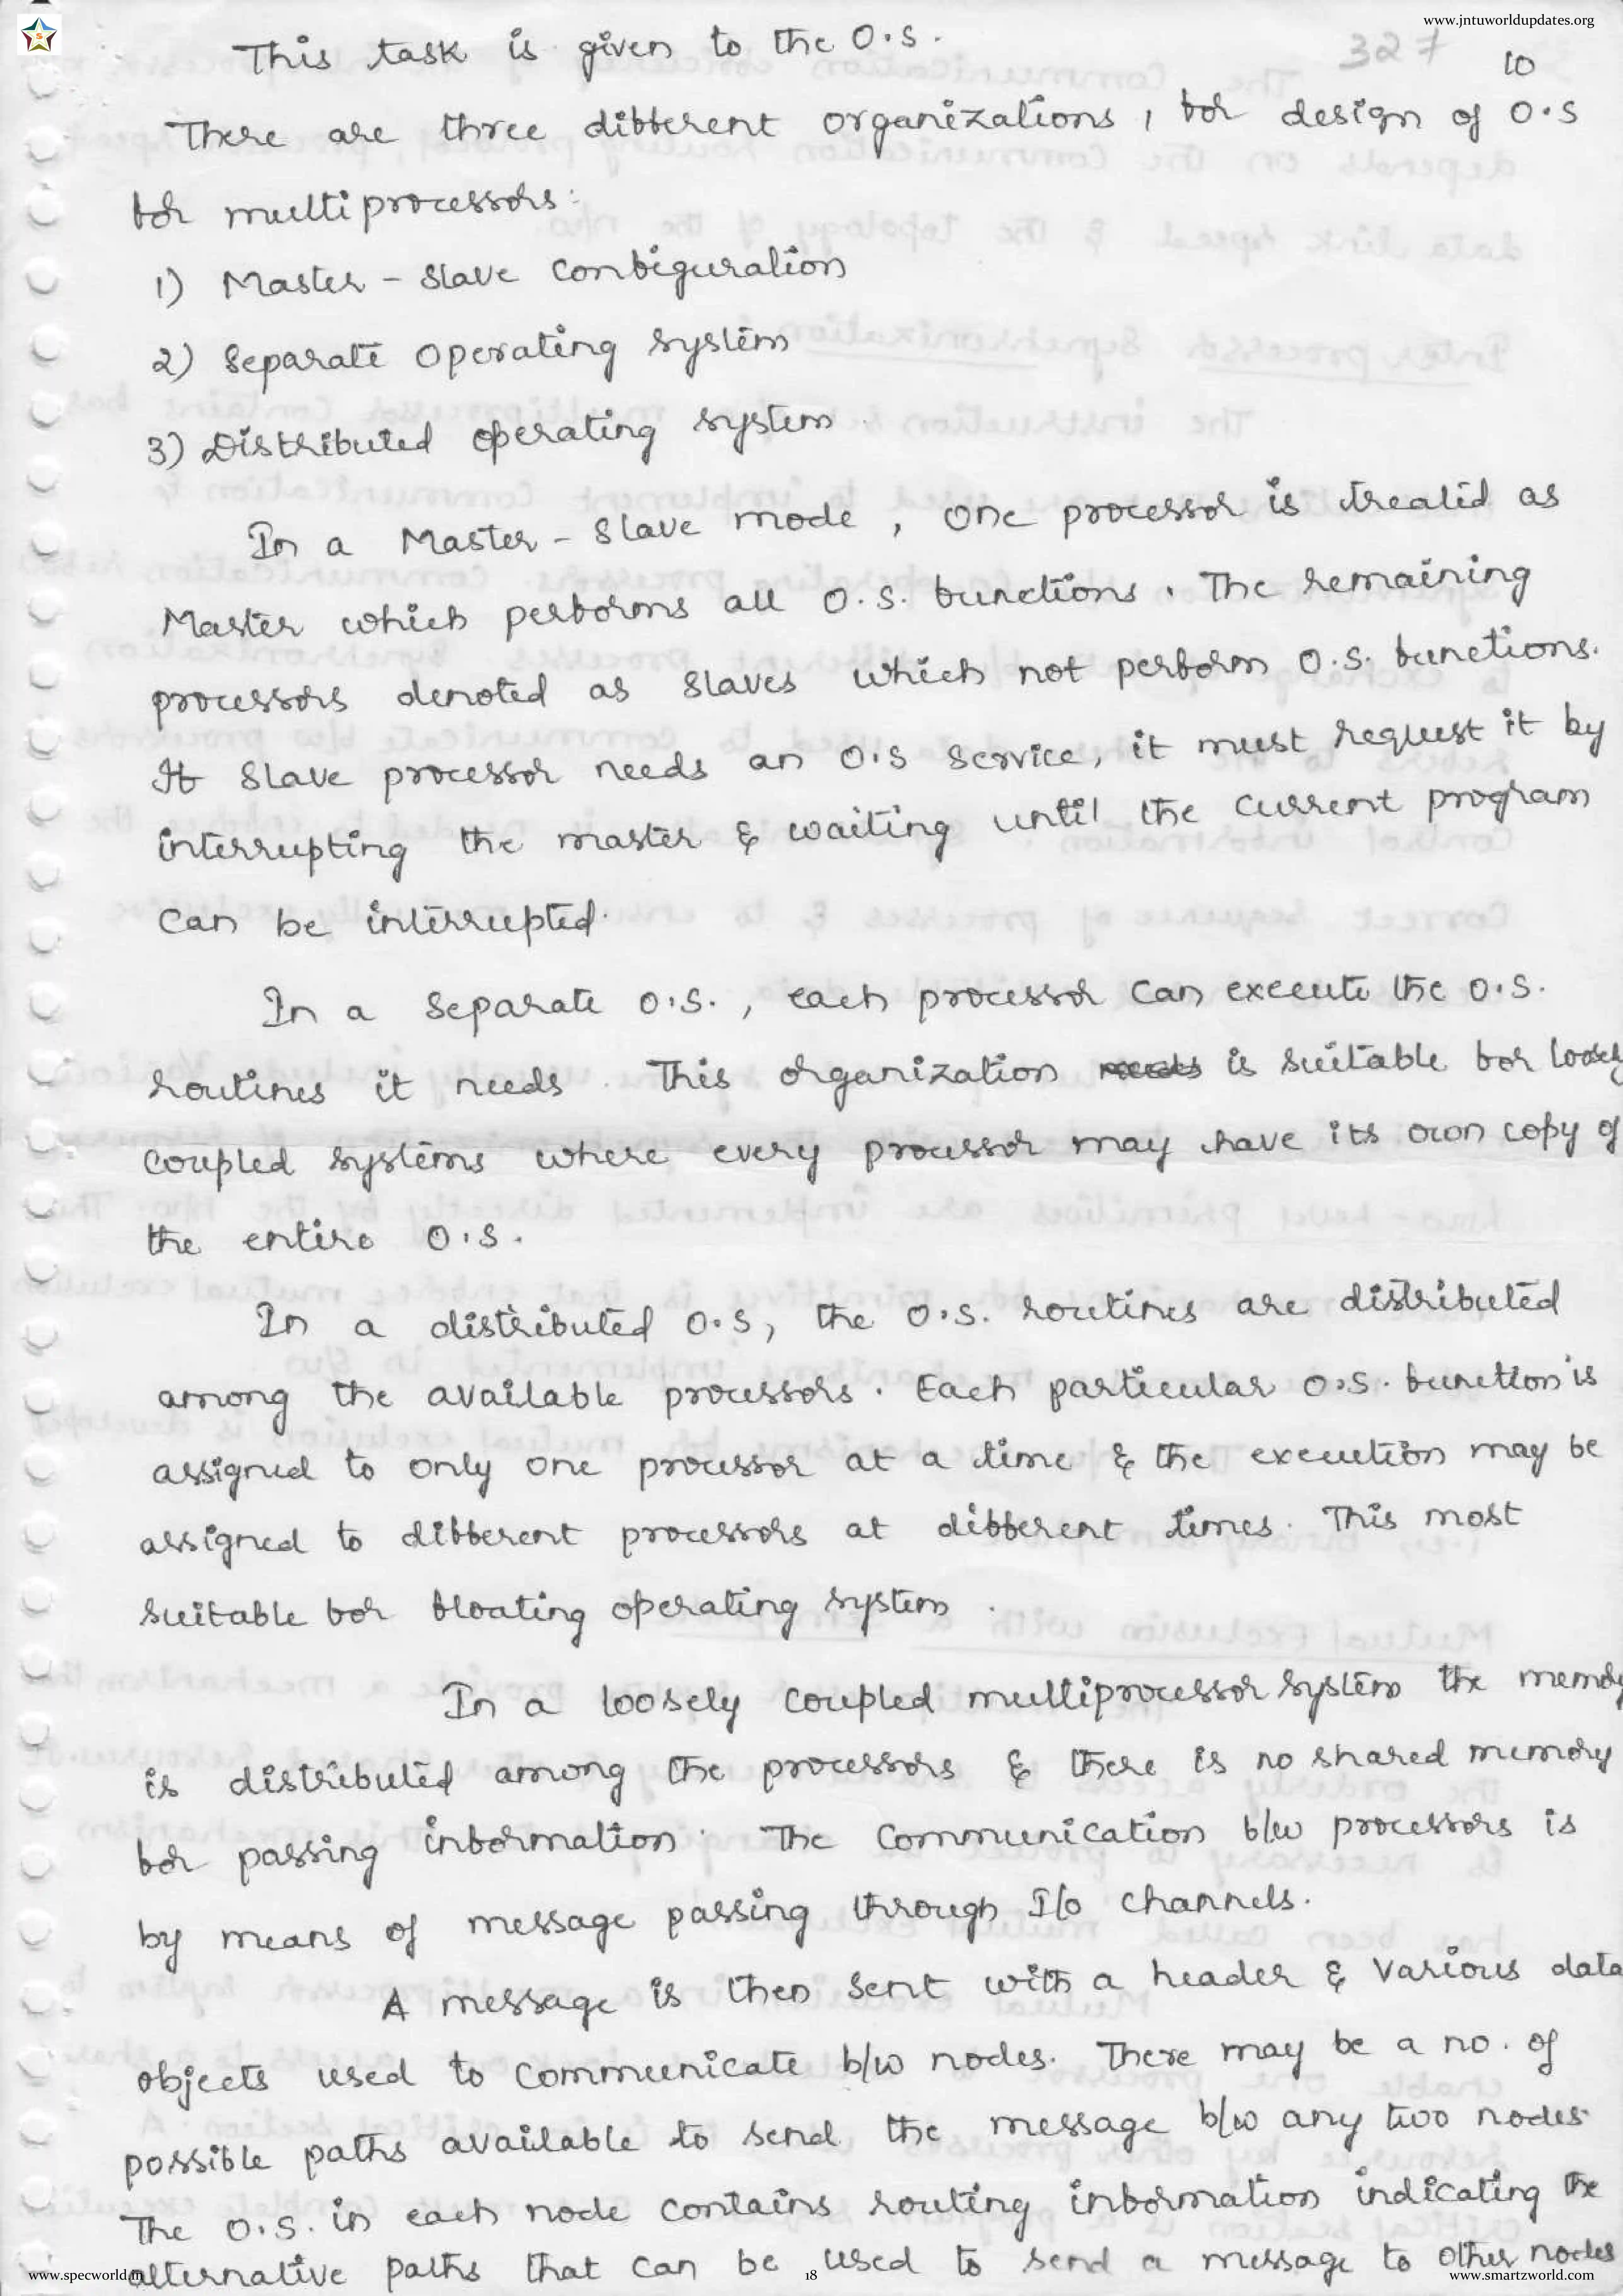 www.jntuworldupdates.org
This task is given to the O.S.
327 10
There are three different organizations, for design of O.S
for multiprocessors:
1) Master - Slave configuration
2) Separate Operating system
3) Distributed operating system.
In a Master - Slave mode, One processor is treated as
Master which performs all O.S. functions. The remaining
processors denoted as slaves which not perform O.S. functions.
If Slave processor needs an O.S service, it must request it by
interrupting the master & waiting until the current program
can be interrupted.
In a Separate O.S., each processor can execute the O.S.
routines it needs. This organization is suitable for loosely
coupled systems where every processor may have its own copy of
the entire O.S.
In a distributed O.S, the O.S. routines are distributed
among the available processors. Each particular O.S. function is
assigned to only one processor at a time & the execution may be
assigned to different processors at different times. This most
suitable for floating operating system.
In a loosely coupled multiprocessor system the memory
is distributed among the processors & there is no shared memory
for passing information. The Communication b/w processors is
by means of message passing through I/o channels.
A message is then sent with a header & various data
objects used to communicate b/w nodes. There may be a no. of
possible paths available to send the message b/w any two nodes.
The O.S. in each node contains routing information indicating the
alternative paths that can be used to send a message to other nodes
www.specworld.in 18 www.smartzworld.com